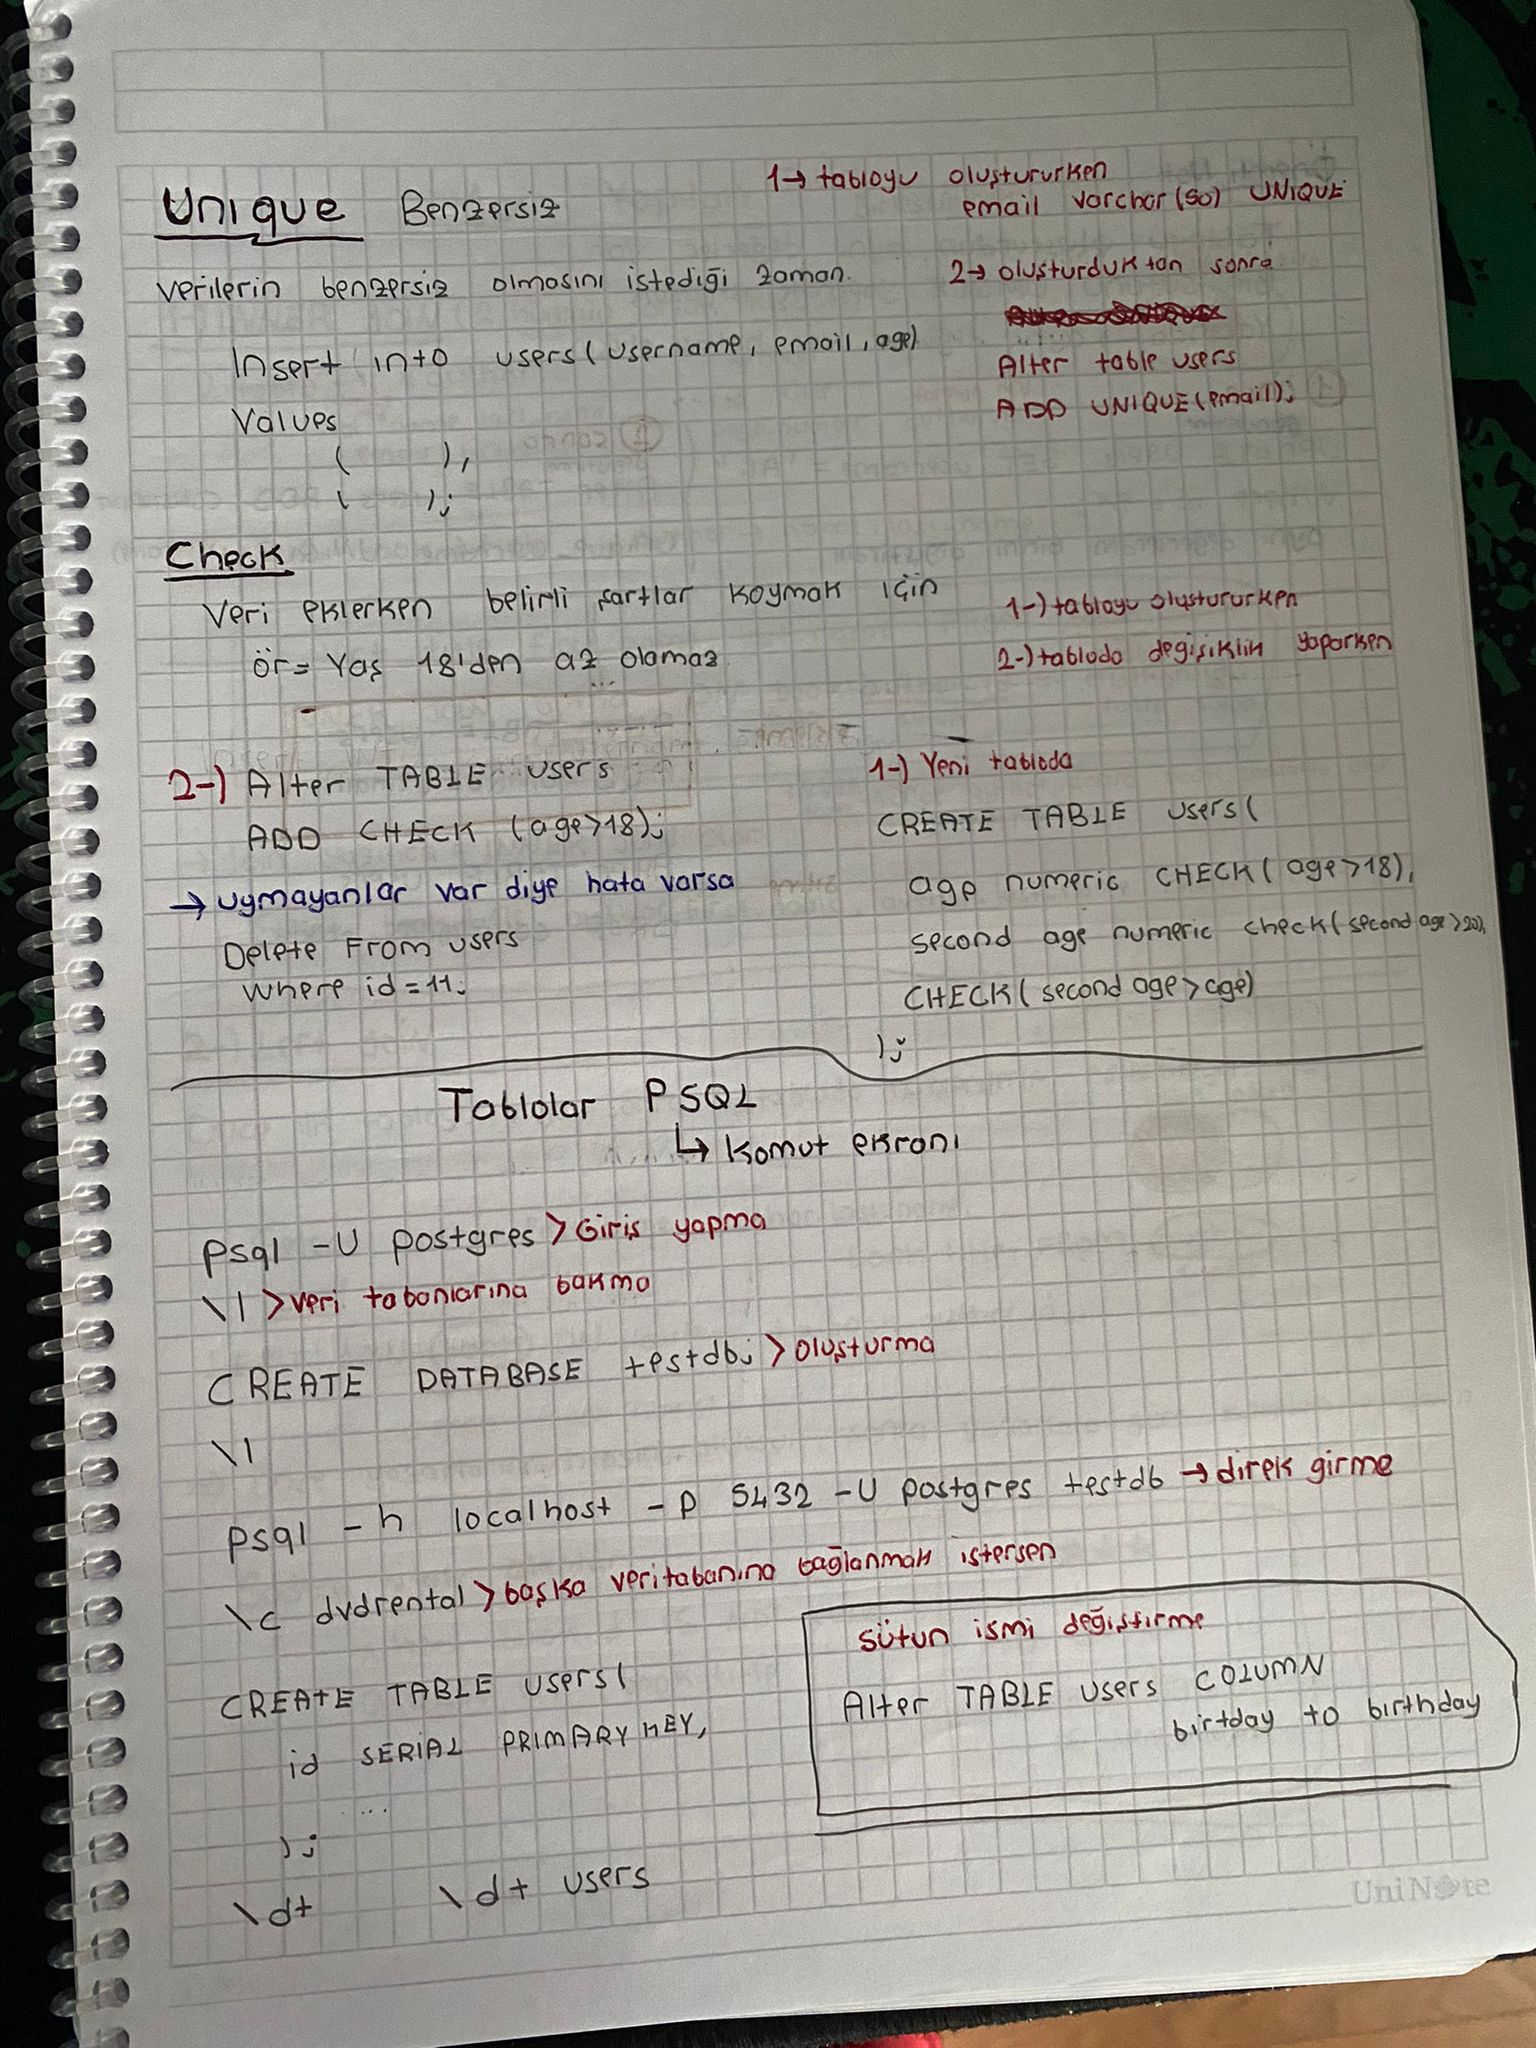 Unique Benzersiz
1→ tabloyu oluştururken
email varchar(50) UNIQUE
verilerin benzersiz olmasını istediği zaman.
2→ oluşturduktan sonra
Insert into users(username, email, age)
Values
(        ),
(        );
Alter table users
ADD UNIQUE(email);
Check
Veri eklerken belirli şartlar koymak için
ör= Yaş 18'den az olamaz.
1-) tabloyu oluştururken
2-) tabloda değişiklik yaparken
2-) Alter TABLE users
ADD CHECK (age>18);
→ uymayanlar var diye hata varsa
Delete From users
where id=11;
1-) Yeni tabloda
CREATE TABLE users(
age numeric CHECK(age>18),
second age numeric check(second age>20),
CHECK(second age>age)
);
Tablolar PSQL
↳ Komut ekranı
psql -U postgres > Giriş yapma
\l > veri tabanlarına bakma
CREATE DATABASE testdb; > oluşturma
\l
psql -h localhost -p 5432 -U postgres testdb → direk girme
\c dvdrental > başka veritabanına bağlanmak istersen
CREATE TABLE users(
id SERIAL PRIMARY KEY,
....
);
\dt \d+ users
sütun ismi değiştirme
Alter TABLE users COLUMN
birtday to birthday
UniNote